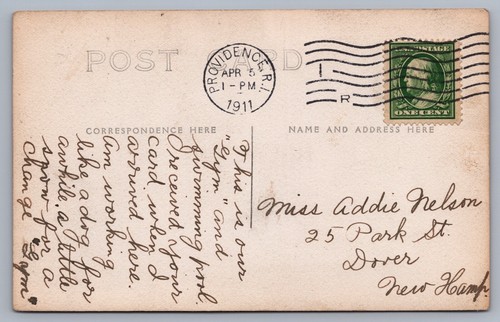 POST CARD
PROVIDENCE, R.I.
APR 5
1-PM
1911
1
R
U.S. POSTAGE
ONE CENT
CORRESPONDENCE HERE
NAME AND ADDRESS HERE
This is our
"Gym" and
swimming pool.
I received your
card when I
arrived here.
Am working
like a dog for
awhile a little
snow for a
change "Gym"
Miss Addie Nelson
25 Park St.
Dover
New Hamp.